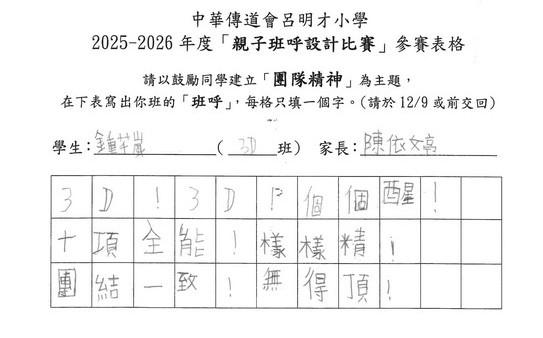 中華傳道會呂明才小學
2025-2026 年度「親子班呼設計比賽」參賽表格
請以鼓勵同學建立「團隊精神」為主題，
在下表寫出你班的「班呼」，每格只填一個字。(請於 12/9 或前交回)
學生：鍾芊嵐 ( 3D 班) 家長：陳依婷
3D！3D！個個醒！
十項全能！樣樣精！
團結一致！無得頂！